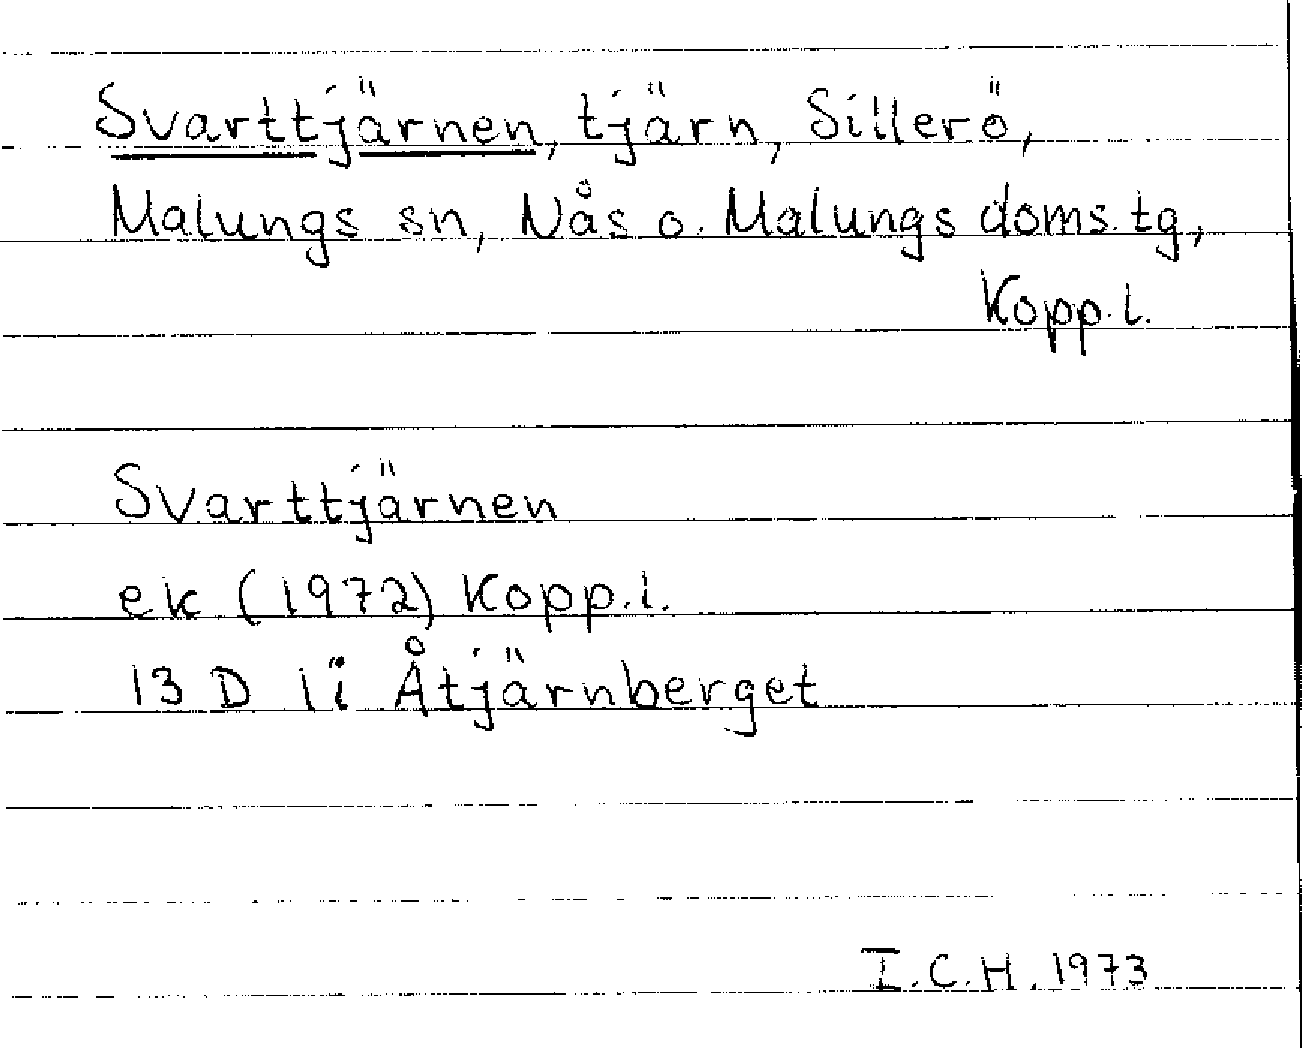 Svarttjärnen, tjärn, Sillerö,
Malungs sn, Nås o. Malungs doms.tg,
Kopp.l.
Svarttjärnen
ek (1972) Kopp.l.
13 D 1i Åtjärnberget
I.C.H. 1973